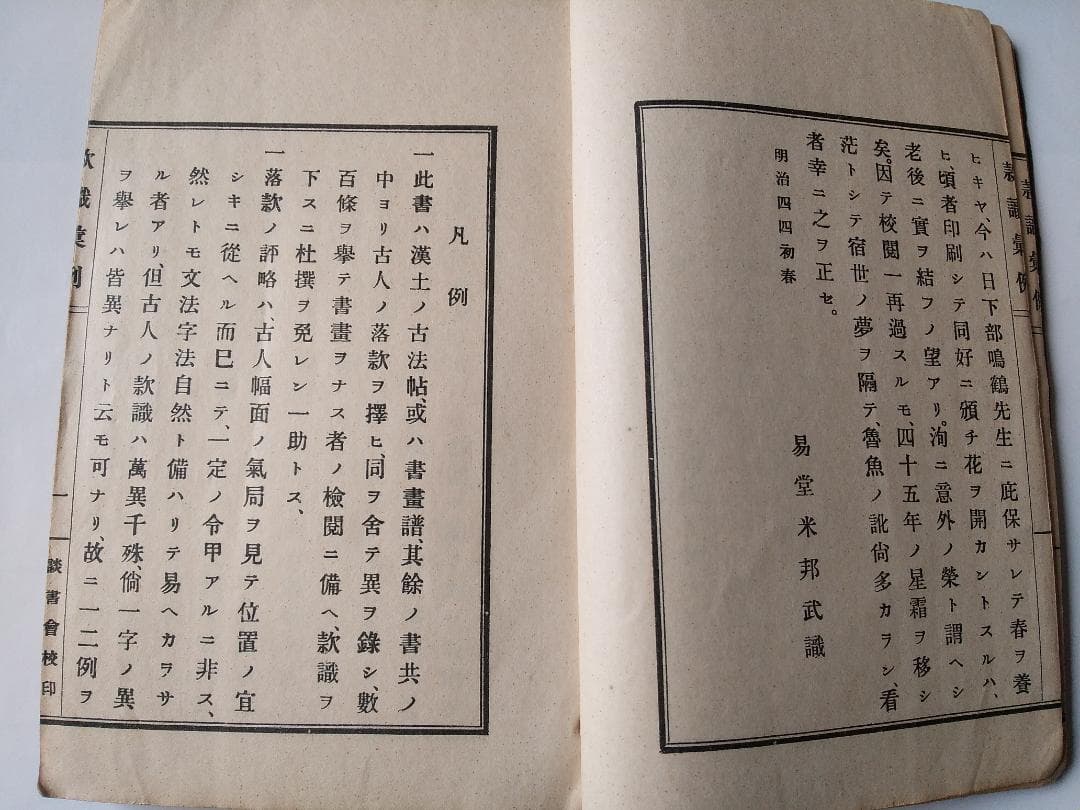 款識彙例
款識彙例
ヒキヤ、今ハ日下部鳴鶴先生ニ庇保サレテ春ヲ養
ヒ、頃者印刷シテ同好ニ頒チ花ヲ開カントスルハ、
老後ニ實ヲ結フノ望アリ。洵ニ意外ノ榮ト謂ヘシ
矣。因テ校閲一再過スルモ、四十五年ノ星霜ヲ移シ
茫トシテ宿世ノ夢ヲ隔テ、魯魚ノ訛尙多カラン、看
者幸ニ之ヲ正セ。
明治四四初春
易堂米邦武識
凡例
一此書ハ漢土ノ古法帖、或ハ書畫譜、其餘ノ書共ノ
中ヨリ古人ノ落款ヲ擇ヒ、同ヲ舍テ異ヲ錄シ、數
百條ヲ擧テ書畫ヲナス者ノ檢閲ニ備ヘ、款識ヲ
下スニ杜撰ヲ免レン一助トス、
一落款ノ評略ハ、古人幅面ノ氣局ヲ見テ位置ノ宜
シキニ從ヘル而已ニテ、一定ノ令甲アルニ非ス、
然レトモ文法字法自然ト備ハリテ易ヘカラサ
ル者アリ但古人ノ款識ハ萬異千殊、倘一字ノ異
ヲ擧レハ皆異ナリト云モ可ナリ、故ニ一二例ヲ
款識彙例
一
談書會校印